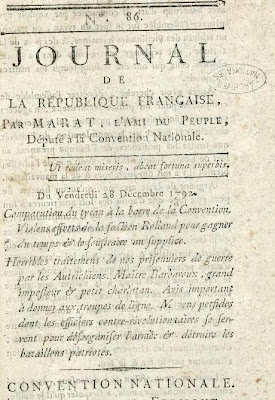 Nº. 86.
JOURNAL
DE
LA RÉPUBLIQUE FRANÇAISE,
PAR MARAT, L'AMI DU PEUPLE,
Député à la Convention Nationale.
Ut redeat miseris, abeat fortuna superbis.
Du Vendredi 28 Décembre 1792.
Comparution du tyran à la barre de la Convention.
Violens efforts de la faction Rolland pour gagner
du temps & le soustraire au supplice.
Horribles traitemens de nos prisonniers de guerre
par les Autrichiens. Maître Barbaroux, grand
imposteur & petit charlatan. Avis important
à donner aux troupes de ligne. Moyens perfides
dont les officiers contre-révolutionnaires se ser-
vent pour désorganiser l'armée & détruire les
bataillons patriotes.
CONVENTION NATIONALE.